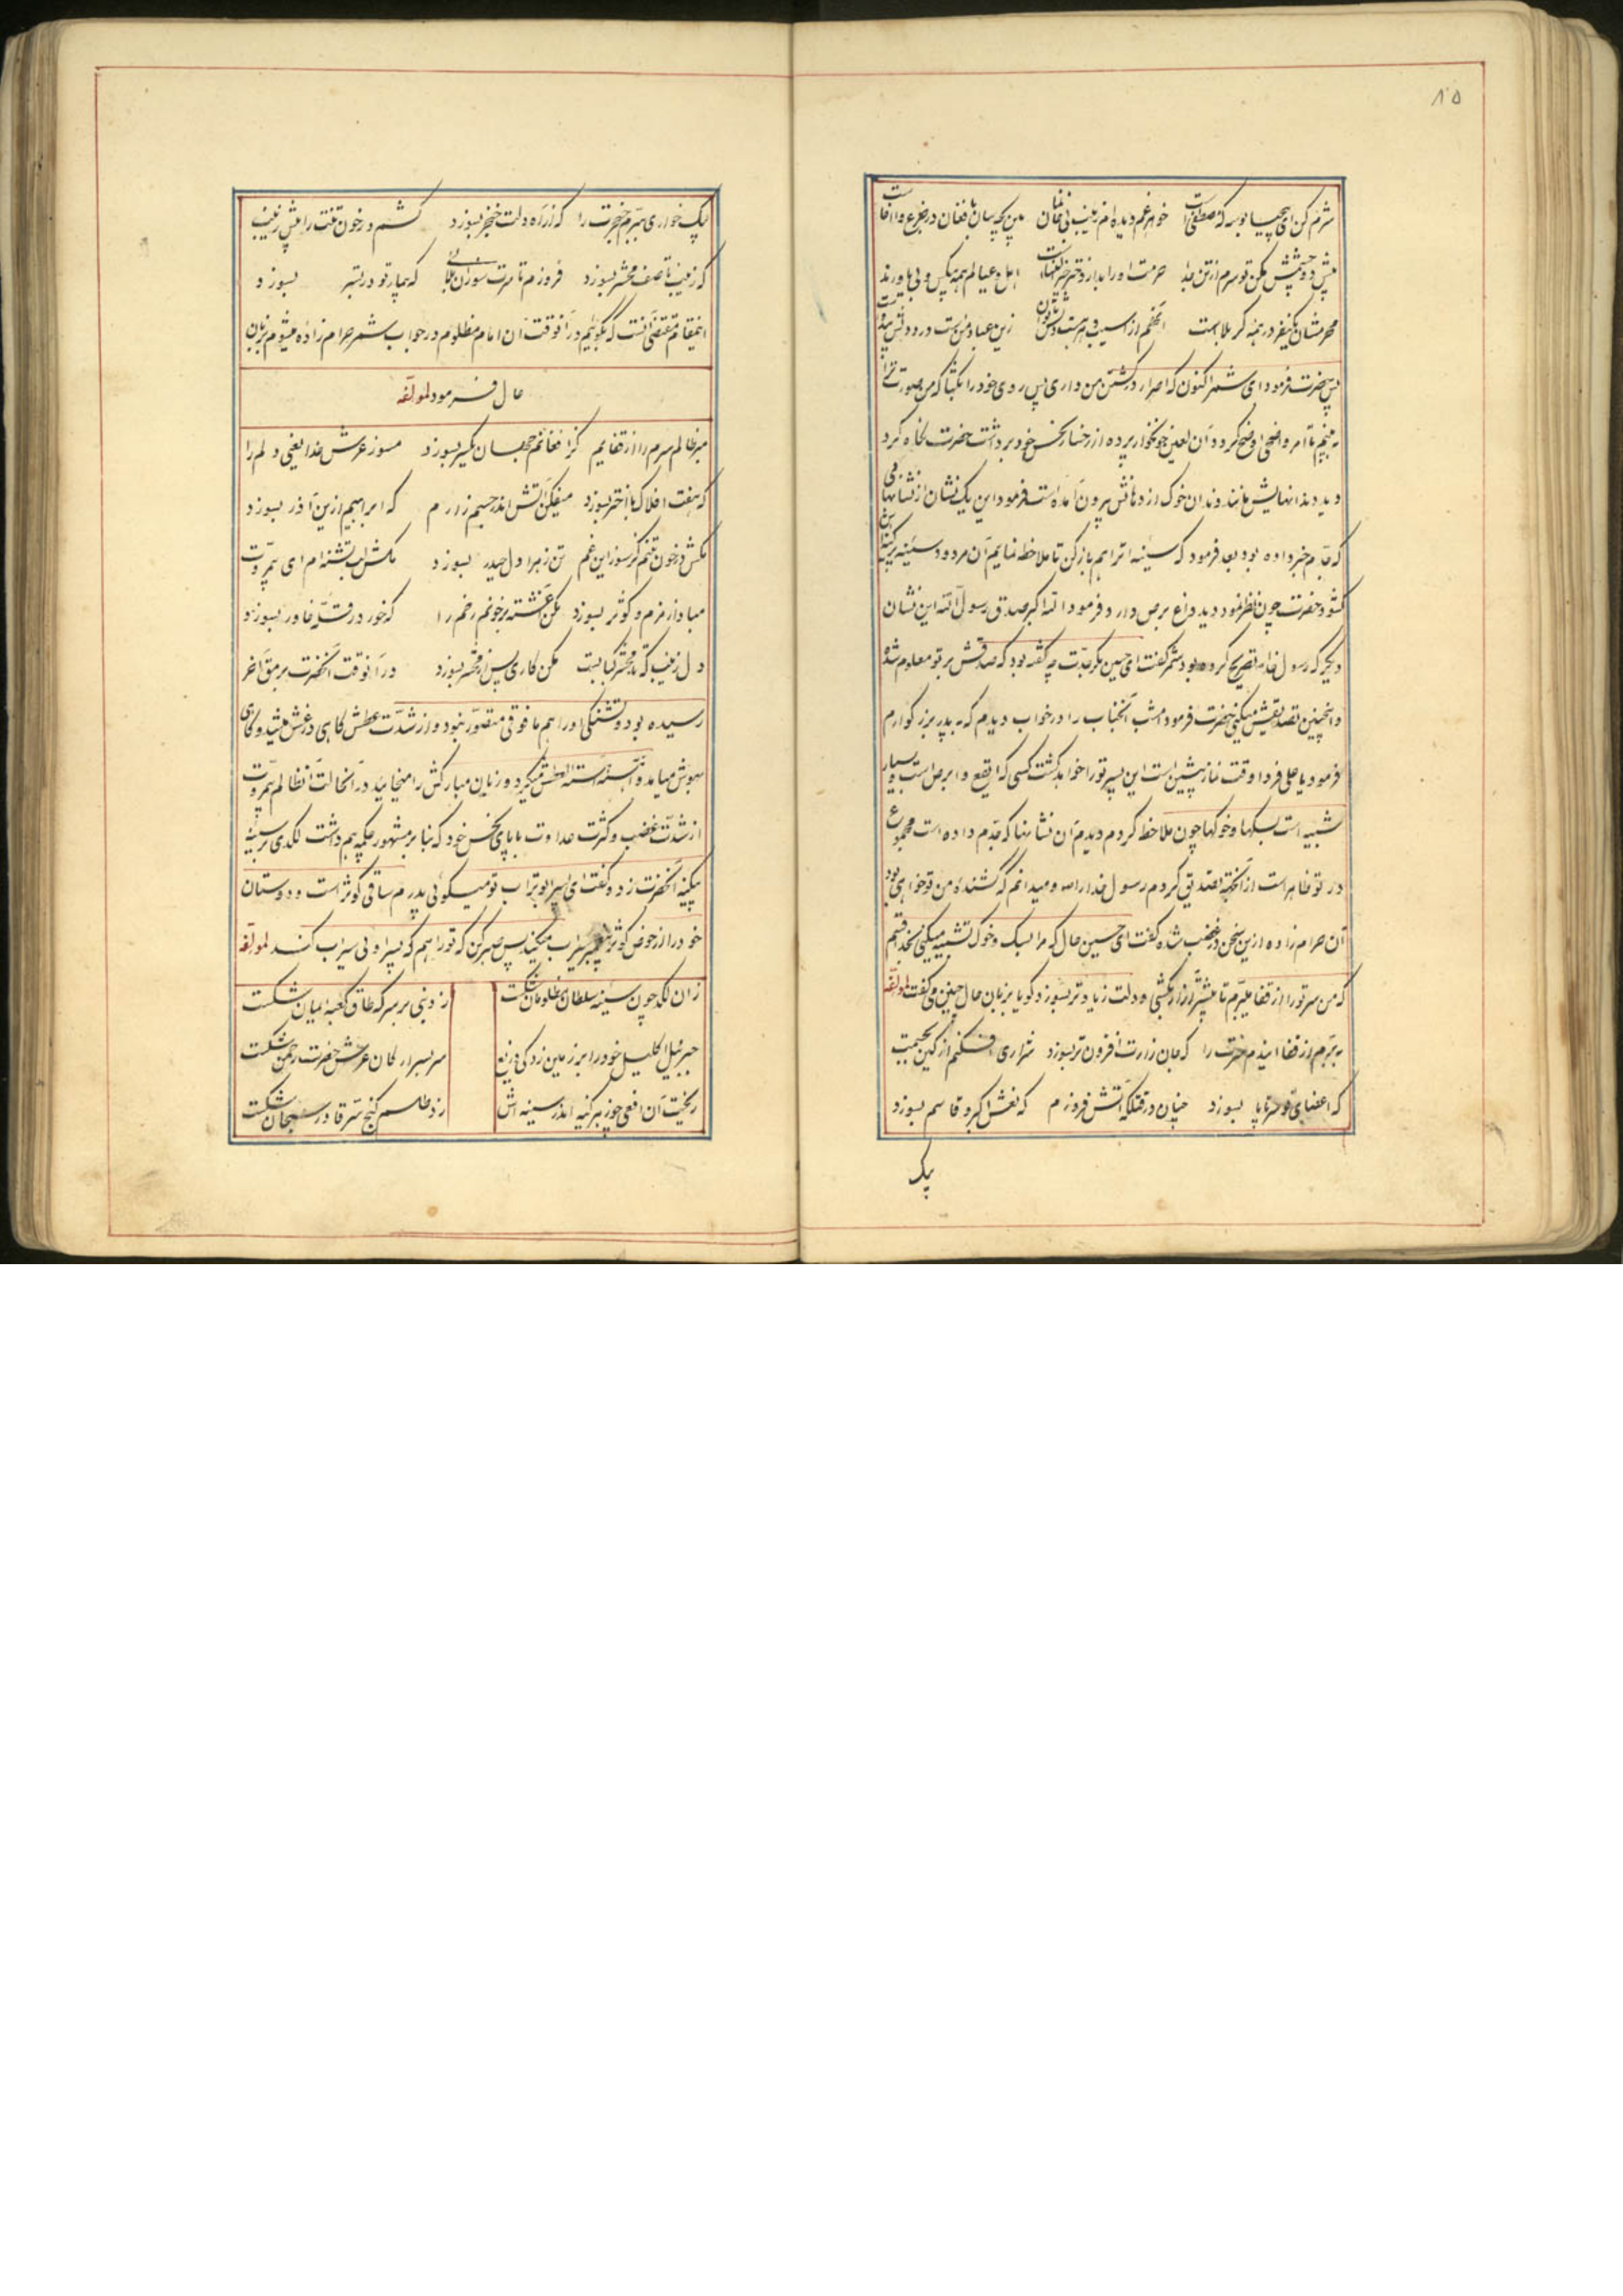 ۸۵
شرم کن ای بیحیا بوسه که مصطفی است خواهر غم دیده ام زینب بی خانمان بین بچه سان با فغان در جزع و افغان است
پیش دو چشمش مکن تو سرم از تن جدا حرمت او را بدار دختر خیرالنساست اهل و عیالم همه بیکس و بی یاورند
محرمشان یکنفر در همه کربلاست آنهم از آسیب و تب
پس حضرت فرمود ای شمر اکنون که اصرار در کشتن من داری پس روی خود را بگشا که من صورت ترا
به بینم تا امر واضحی اوضح کردد آن لعین خونخوار پرده از رخسار نحس خود برداشت حضرت نگاه کرد
دید دندانهایش مانند دندان خوک از دهانش بیرون آمده است فرمود این یک نشان از نشانهائی
که جدم خبر داده بود بعد فرمود که سینه ات را هم باز کن تا ملاحظه نمایم آن مردود سینه پرکینه را
کشود حضرت چون نظر نمود دید داغ برص دارد فرمود الله اکبر صدق رسول الله این نشان
دیگر که رسول خدا تصریح کرده بود شمر گفت ای حسین مگر جدت چه گفته بود که صدقش بر تو معلوم شد
و اینچنین تصدیقش میکنی حضرت فرمود امشب آنجناب را در خواب دیدم که به پدر بزرگوارم
فرمود یا علی فردا وقت نماز پیشین است این پسر تو را خواهد کشت کسی که ابقع و ابرص است و بسیار
شبیه است بسکها و خوکها چون ملاحظه کردم دیدم آن نشانها که جدم داده است مجموع
در تو ظاهر است از آنجهة تصدیق کردم رسول خدا را و میدانم که کشنده من تو خواهی بود
آن حرام زاده ازین سخن در غضب شده گفت ای حسین حال که مرا بسک و خوک تشبیه میکنی بخدا قسم
که من سر تو را از قفا میبرم تا بیشتر آزار بکشی و دلت زیادتر بسوزد و گویا بزبان حال چنین می گفت لمؤلفه
ببرم از قفا ایندم سرت را که جان زارت افزون تر بسوزد شراری افکنم از کین بجیبت
که اعضای تو سر تا پا بسوزد چنان در قتلگه آتش فروزم که نعش اکبر و قاسم بسوزد
یک
یک خواری ببرم حنجرت را که از راه دلت خنجر بسوزد کشم در خون تنت را پیش زینب
که زینب تا صف محشر بسوزد فروزم تا سرت سوزان بلائی که بیمار تو در بستر بسوزد
اینمقام مقتضی آنست که بگوئیم در آنوقت آن امام مظلوم در جواب شمر حرام زاده میشوم بزبان
حال فرمود لمؤلفه
مبر ظالم سرم را از قفایم کز افغانم جهان یکسر بسوزد مسوز عرش خدا یعنی دلم را
که هفت افلاک با اختر بسوزد میفکن آتش اندر جسم زارم که ابراهیم ازین آذر بسوزد
مکش در خون تنم کز سوز این غم تن زهرا دل حیدر بسوزد مکش لب تشنه ام ای بیمروت
مبادا زمزم و کوثر بسوزد مکن آغشته بر خونم رخم را که خور در قبله خاور بسوزد
دل زینب که بد محشر کبابست مکن کاری پس از محشر بسوزد در آنوقت آنحضرت برمق آخر
رسیده بود و تشنگی او را هم مافوقی متصور نبود و از شدت عطش گاهی در غش میشد و گاهی
بهوش میآمد و آهسته آهسته العطش میکرد و زبان مبارکش را میخائید در آنحالت آن ظالم بیمروت
از شدت غضب و کثرت عداوت با پای نحس خود که بنا بر مشهور چکمه هم داشت لگدی بر سینه
بیکینه آنحضرت زد و گفت ای پسر ابوتراب تو میگوئی پدرم ساقی کوثر است و دوستان
خود را از حوض کوثر سیراب میکند پس صبر کن که تو را هم که پسر اوئی سیراب کند لمؤلفه
زان لگد چون سینه سلطان مظلومان شکست زد نبی بر سر که طاق کعبه ایمان شکست
جبرئیل اکلیل خود را بر زمین زد سر بسر ارکان عرش حضرت رحمن شکست
ریخت آن افعی چو زهر کینه اندر سینه اش زد طلسم گنج سر قادر سبحان شکست